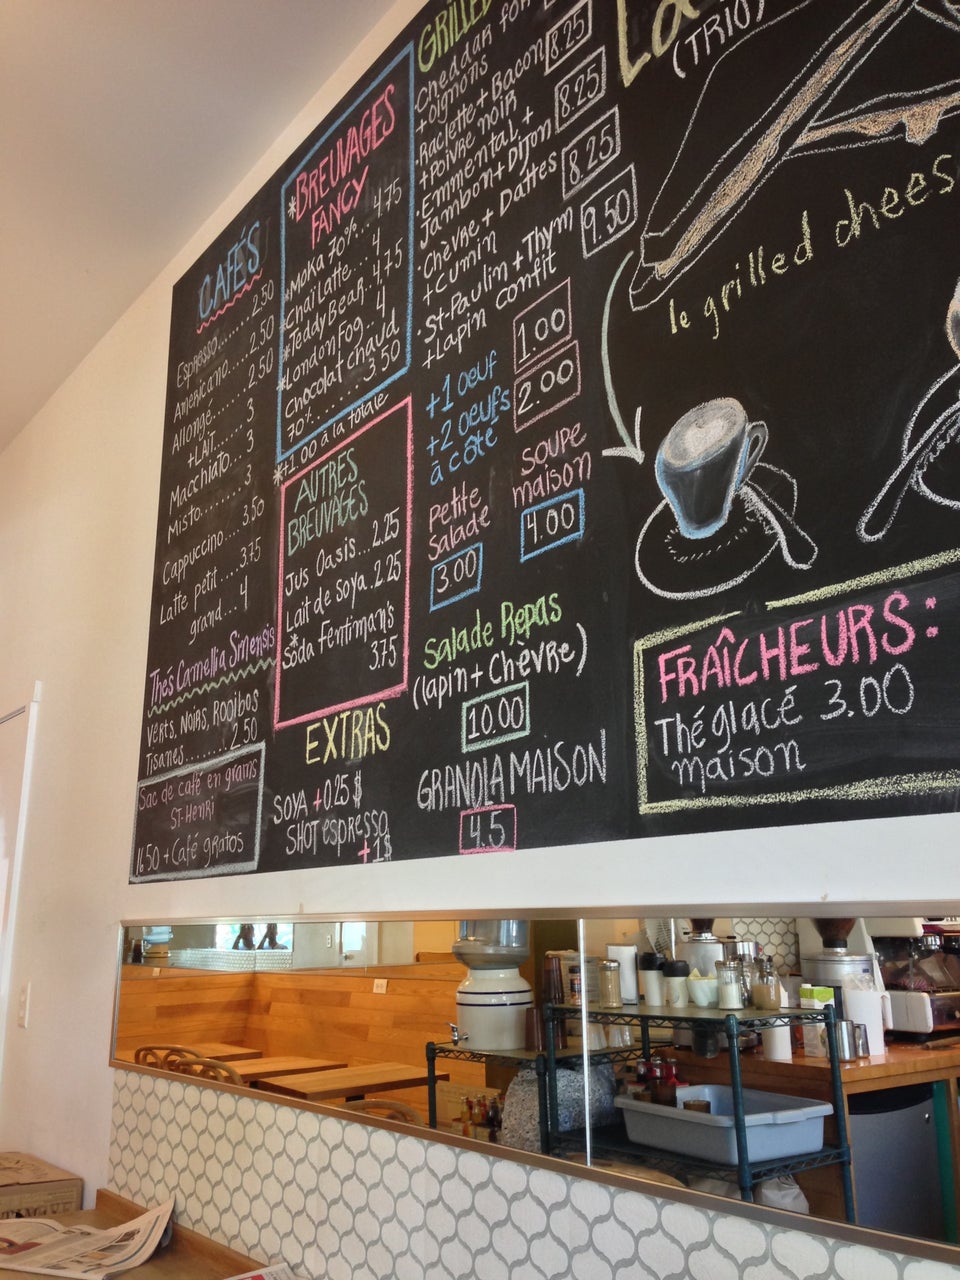 CAFÉS
Espresso........2.50
Americano......2.50
Allongé........2.50
+LAIT......3
Macchiato...3
Misto........3
Cappuccino....3.50
Latte petit....3.75
grand...4
Thés Camellia Sinensis
Verts, Noirs, Rooibos
Tisanes.......2.50
Sac de café en grains
St-Henri
16.50 + Café gratos
*BREUVAGES
FANCY
*Moka 70%...4.75
*Chaï Latte....4
*Teddy Bear..4.75
*London Fog..4
Chocolat Chaud
70%......3.50
*+1.00 à la totale
AUTRES
BREUVAGES
Jus Oasis...2.25
Lait de Soya..2.25
Soda Fentiman's
3.75
EXTRAS
SOYA +0.25$
SHOT espresso
+1$
GRILLED
Cheddar for
+oignons
8.25
·Raclette + Bacon
+Poivre noir
8.25
·Emmental +
Jambon + Dijon
8.25
·Chèvre + Dattes
+Cumin
9.50
·St-Paulin + Thym
+Lapin confit
+1 oeuf
1.00
+2 oeufs
2.00
à côté
Petite
Salade
3.00
Soupe
maison
4.00
Salade Repas
(lapin + Chèvre)
10.00
GRANOLA MAISON
4.5
La
(TRIO)
le grilled chees
FRAÎCHEURS:
Thé glacé 3.00
maison